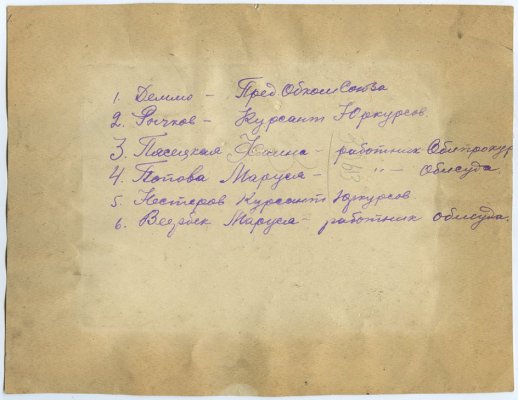 1. Деммо – Пред. Обком Союза
2. Рычков – Курсант Юркурсов.
3. Пясецкая – работник Облпрокур
4. Попова Маруся – " – Облсуда.
5. Нестеров Курсант Юркурсов
6. Маруся – работник облсуда.